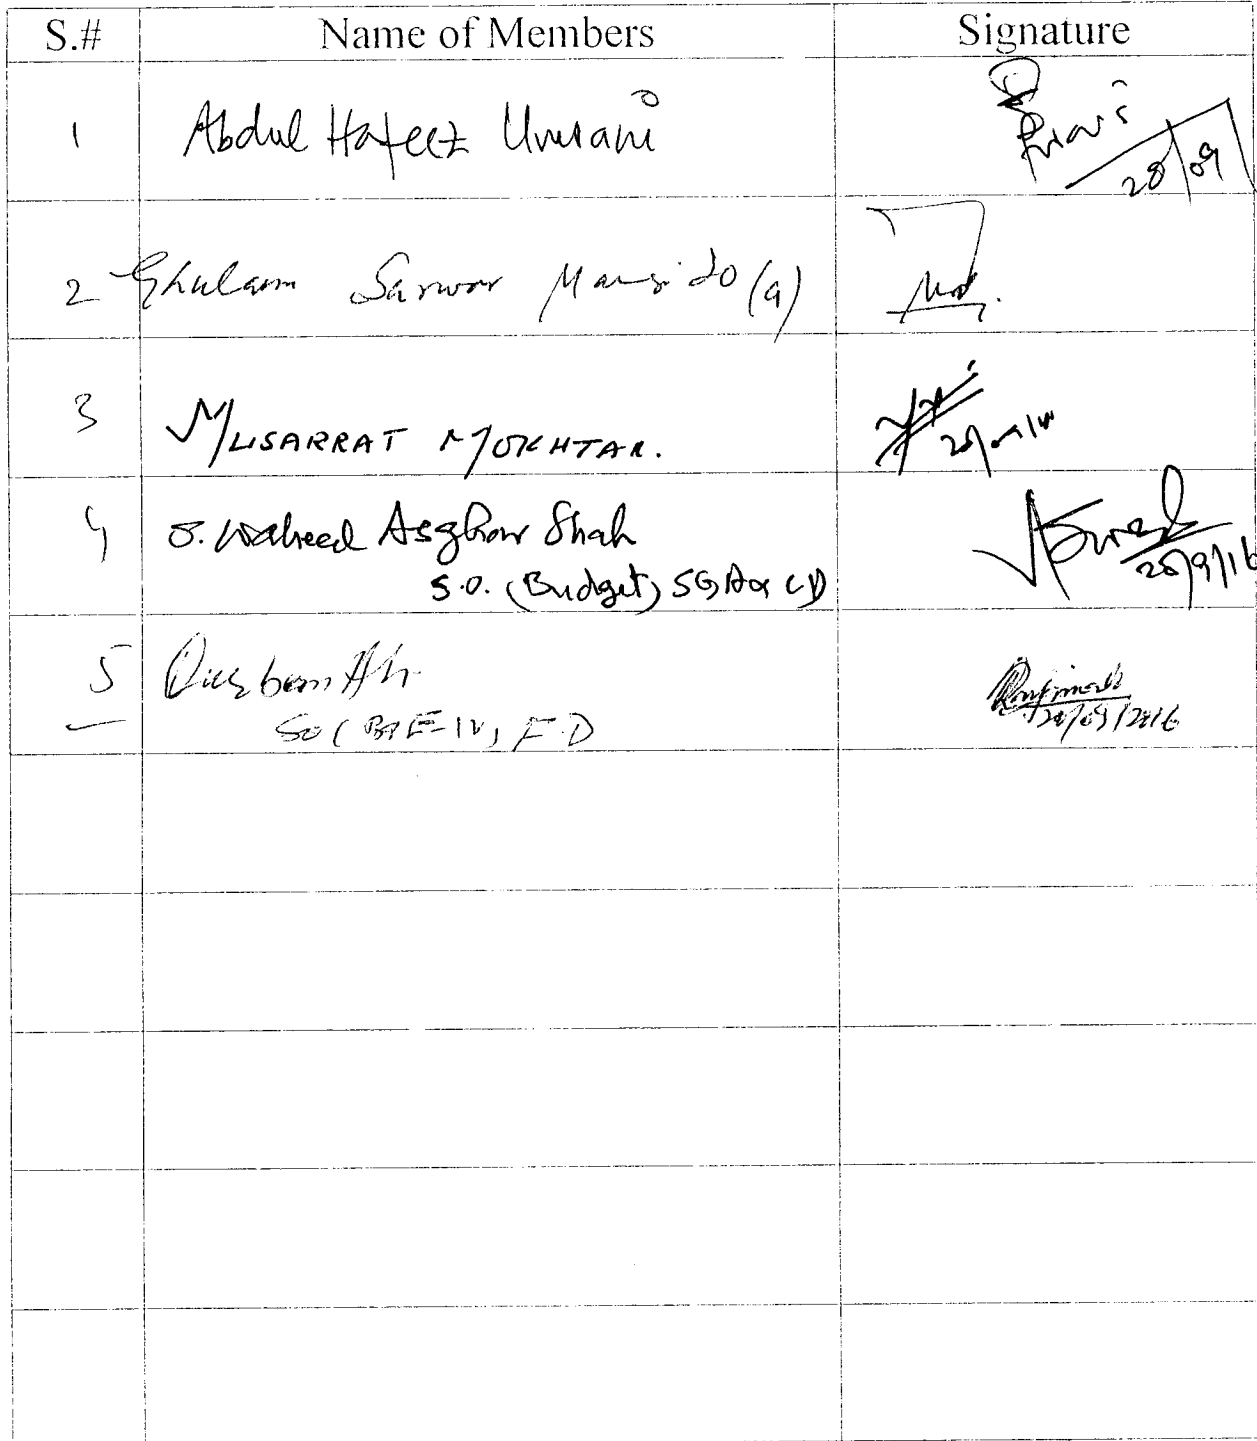 S.# Name of Members Signature
1 Abdul Hafeez Umrani
28/09
2 Ghulam Sarwar (a)
3 MUSARRAT MOKHTAR.
4 S. Waheed Asghar Shah
S.O. (Budget) SGA&CD 28/9/16
5
SO (B&E-IV) F.D 28/09/2016